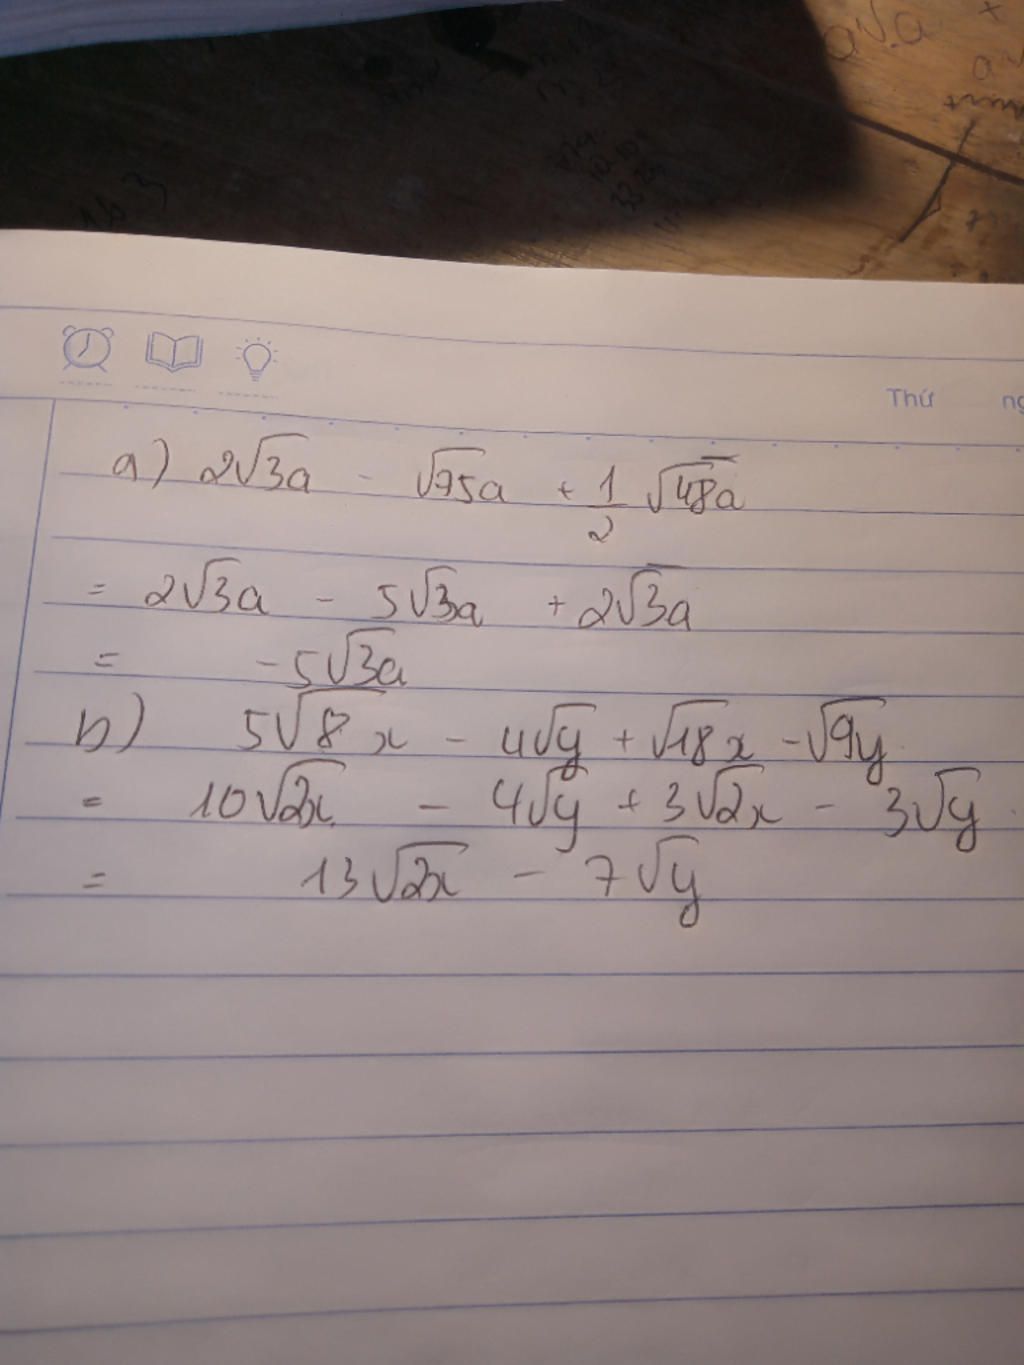 Thứ
a) 2√3a - √75a + 1/2 √48a
= 2√3a - 5√3a + 2√3a
= -5√3a
b) 5√8x - 4√y + √18x - √9y
= 10√2x - 4√y + 3√2x - 3√y
= 13√2x - 7√y